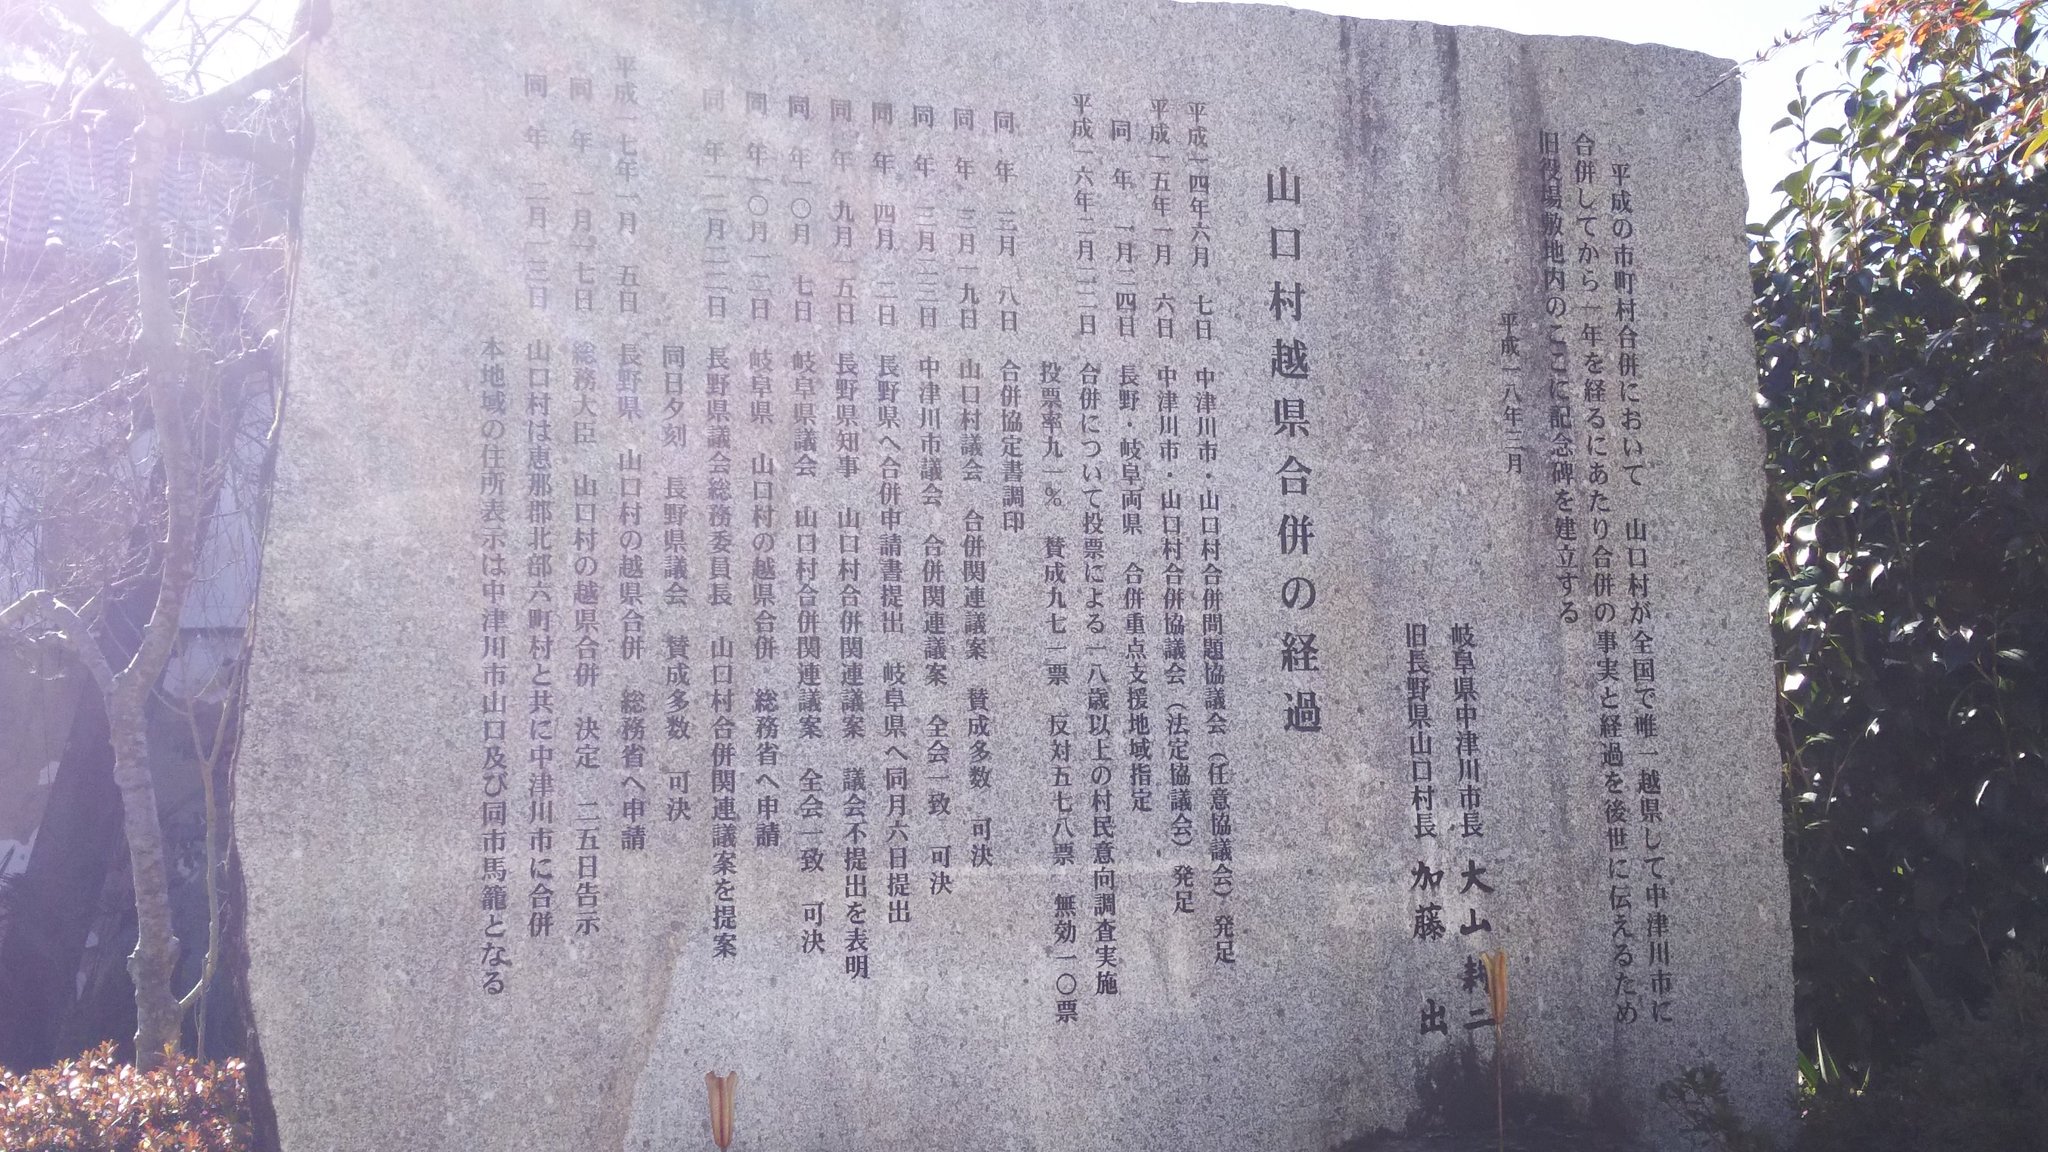 平成の市町村合併において　山口村が全国で唯一越県して中津川市に
合併してから一年を経るにあたり合併の事実と経過を後世に伝えるため
旧役場敷地内のここに記念碑を建立する
平成一八年二月
岐阜県中津川市長　大山耕二
旧長野県山口村長　加藤　出
山口村越県合併の経過
平成一四年六月　七日　中津川市・山口村合併問題協議会（任意協議会）発足
平成一五年一月　六日　中津川市・山口村合併協議会（法定協議会）発足
同　年　一月二四日　長野・岐阜両県　合併重点支援地域指定
平成一六年二月二二日　合併について投票による一八歳以上の村民意向調査実施
投票率九一％　賛成九七一票　反対五七八票　無効一〇票
同　年　三月　八日　合併協定書調印
同　年　三月一九日　山口村議会　合併関連議案　賛成多数　可決
同　年　三月二三日　中津川市議会　合併関連議案　全会一致　可決
同　年　四月　二日　長野県へ合併申請書提出　岐阜県へ同月六日提出
同　年　九月一五日　長野県知事　山口村合併関連議案　議会不提出を表明
同　年一〇月　七日　岐阜県議会　山口村合併関連議案　全会一致　可決
同　年一〇月一二日　岐阜県　山口村の越県合併　総務省へ申請
同　年一二月二二日　長野県議会総務委員長　山口村合併関連議案を提案
同日夕刻　長野県議会　賛成多数　可決
平成一七年一月　五日　長野県　山口村の越県合併　総務省へ申請
同　年　一月一七日　総務大臣　山口村の越県合併　決定　二五日告示
同　年　二月一三日　山口村は恵那郡北部六町村と共に中津川市に合併
本地域の住所表示は中津川市山口及び同市馬籠となる